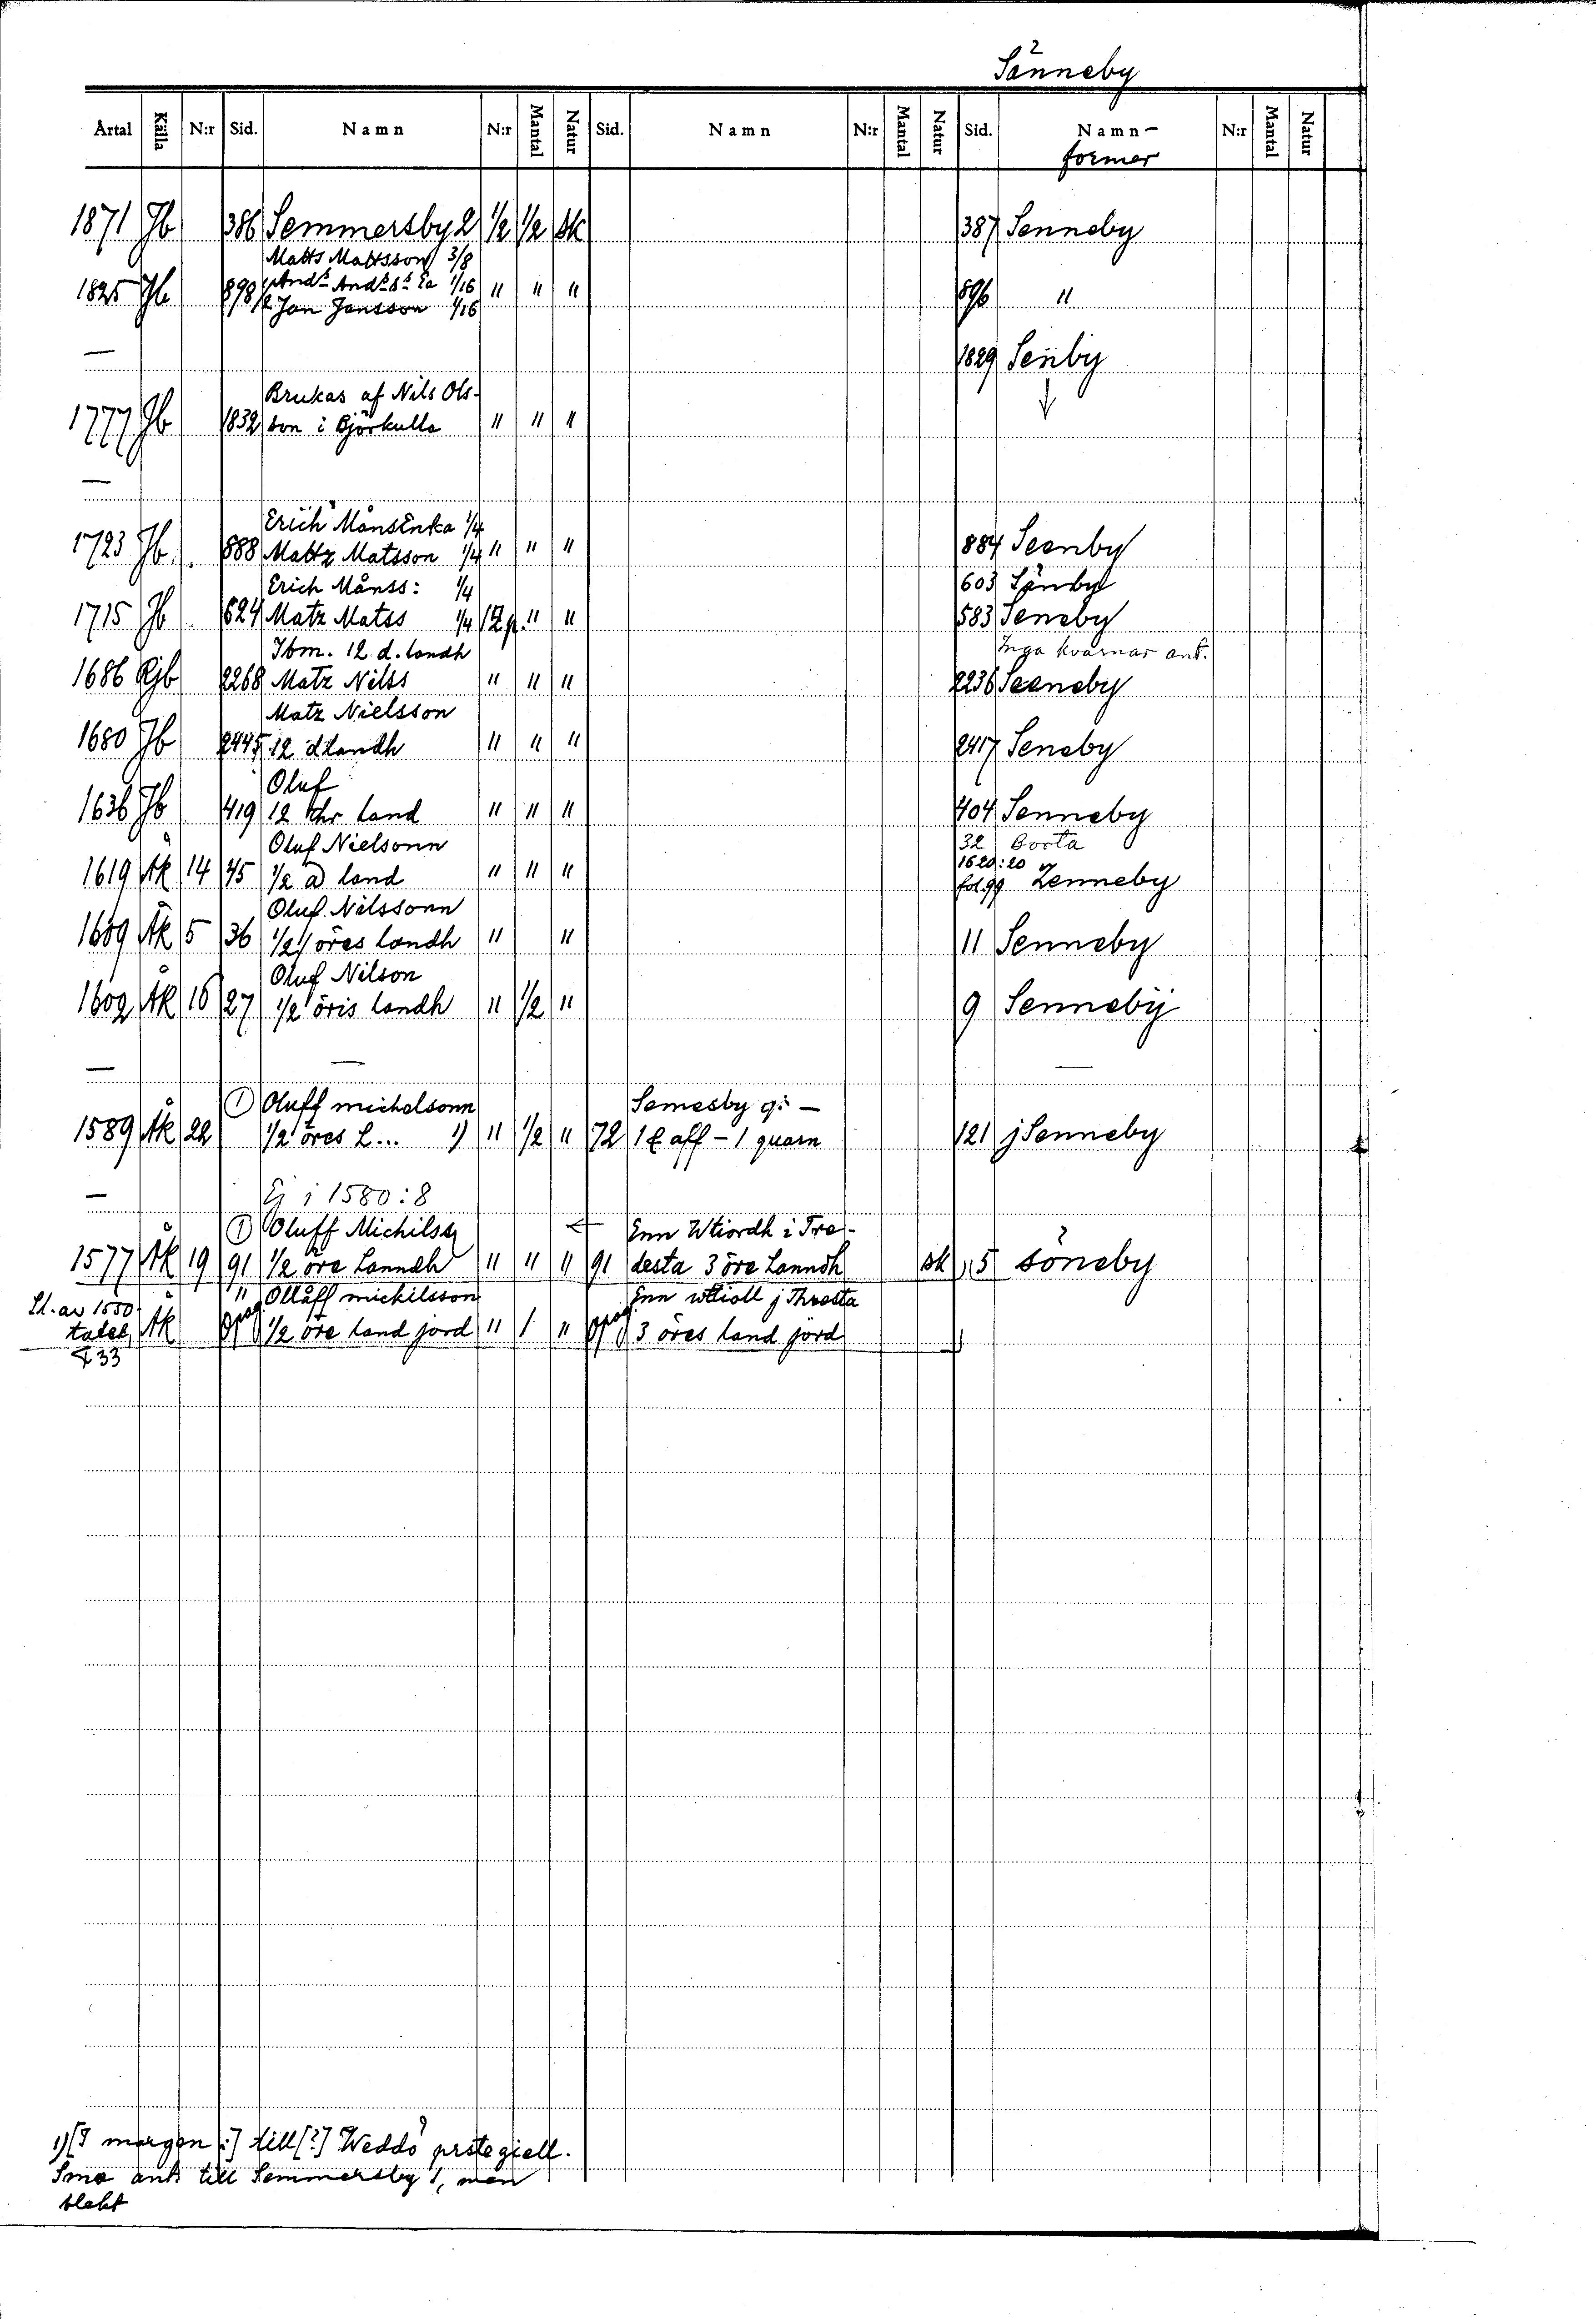 Sänneby
Årtal Källa N:r Sid. Namn N:r Mantal Natur Sid. Namn N:r Mantal Natur Sid. Namn- N:r Mantal Natur
former
1871 Jb 386 Semmersby 2 1/2 1/2 sk 387 Senneby
Matts Mattsson 3/8
And:s And:s S:s Ea 1/16
1825 Jb 898 " " " 896 "
Jan Jansson 1/16
— 1829 Senby
Brukas af Nils Ols-
1777 Jb 1832 son i Björkulla " " "
—
Erich Måns Enka 1/4
1723 Jb 888 Mattz Matsson 1/4 " " " 884 Seenby
Erich Månss: 1/4 603 Sänby
1715 Jb 624 Matz Matss 1/4 1/2 " " 583 Seneby
Ibm. 12 d. landh Inga kvarnar ant.
1686 Rjb 2268 Matz Nilss " " " 2236 Seeneby
Matz Nielsson
1680 Jb 2445 12 d landh " " " 2417 Seneby
Oluf
1636 Jb 419 12 thr land " " " 404 Senneby
Oluf Nielsonn 32 Borta
1620:20
1619 Åk 14 45 1/2 a land " " " fol. 99 Zenneby
Oluf Nilssonn
1609 Åk 5 36 1/2 öres landh " " 11 Senneby
Oluf Nilson
1602 Åk 16 27 1/2 öris landh " 1/2 " 9 Sennebÿ
— — —
1) Oluff michelsonn Semesby g: —
1589 Åk 22 1/2 öres L... 1) " 1/2 " 72 1 £ aff - 1 quarn 121 j Senneby
— Ej i 1580:8
1) Oluff Michilss Enn Wtiordh i Tre-
1577 Åk 19 91 1/2 öre Lanndh " " " 91 desta 3 öre Lanndh sk 5 söneby
" Ollåff mickilsson Enn wtioll j Thresta
Sl. av 1550-
talet Åk opag 1/2 öre land jord " 1 " opag 3 öres land jörd
F 33
1) [I margen:] till [?] Weddö prstegiell.
Sma ant. till Semmersby 1, men
slekt